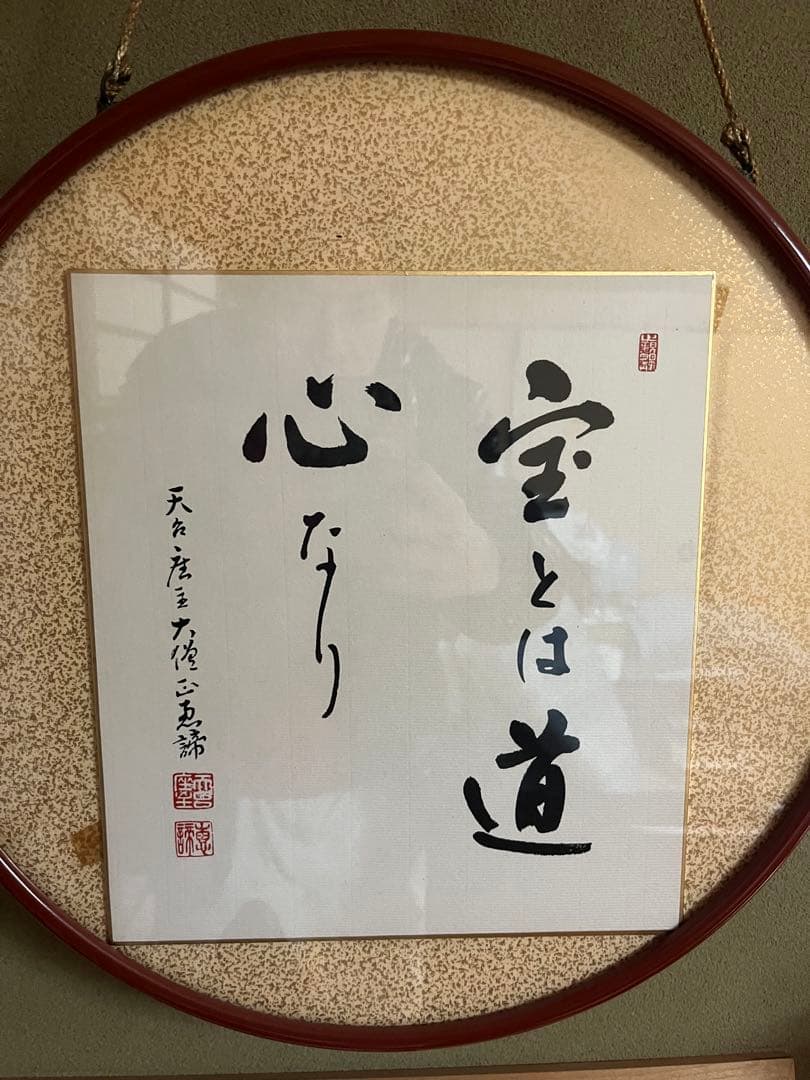 宝とは道
心なり
天台座主大僧正恵諦